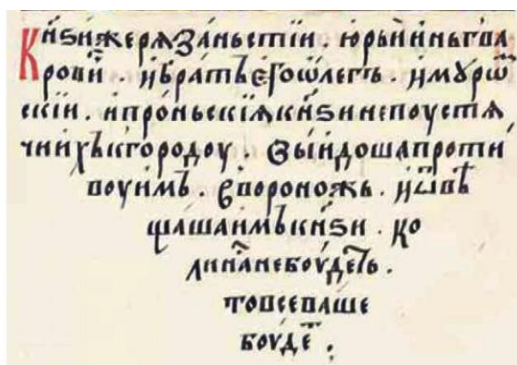 Кн҃ѕи же рѧзаньстїи . юрьи иньгва
рови . и братъ єго ѡлегъ и мꙋрѡ
скїи . и проньскїѧ кн҃ѕи не поустѧ
чи ихъ къ городоу . выидоша проти
воу имъ . в вороножь . и ѿвѣ
щаша имъ кн҃ѕи . ко
ли на не боудеть .
то все ваше
боуде .